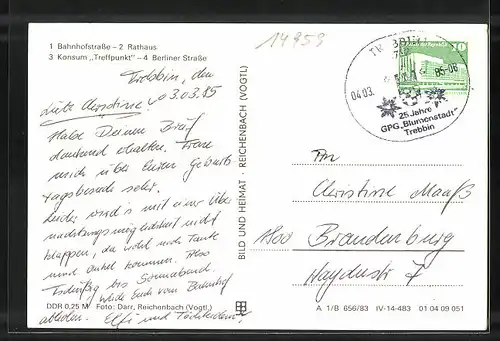 1 Bahnhofstraße – 2 Rathaus
3 Konsum „Treffpunkt" – 4 Berliner Straße
14953
Trebbin, den
03.03.85
Liebe Christine!
Habe Deinen Brief
dankend erhalten. Freue
mich über Euren Geburts-
tagsbesuch sehr.
Leider wird's mit einer Über-
nachtungsmöglichkeit nicht
klappen, da wohl noch Tante
und Onkel kommen. Also
Tschüß bis Sonnabend.
werde Euch vom Bahnhof
abholen. Elfi und
DDR 0,25 M Foto: Darr, Reichenbach (Vogtl.)
BILD UND HEIMAT · REICHENBACH (VOGTL)
TREBBIN
04.03. 85-08
25 Jahre
GPG „Blumenstadt"
Trebbin
10
Christine Maaß
1800 Brandenburg
Haydnstr 7
A 1/B 656/83 IV-14-483 01 04 09 051